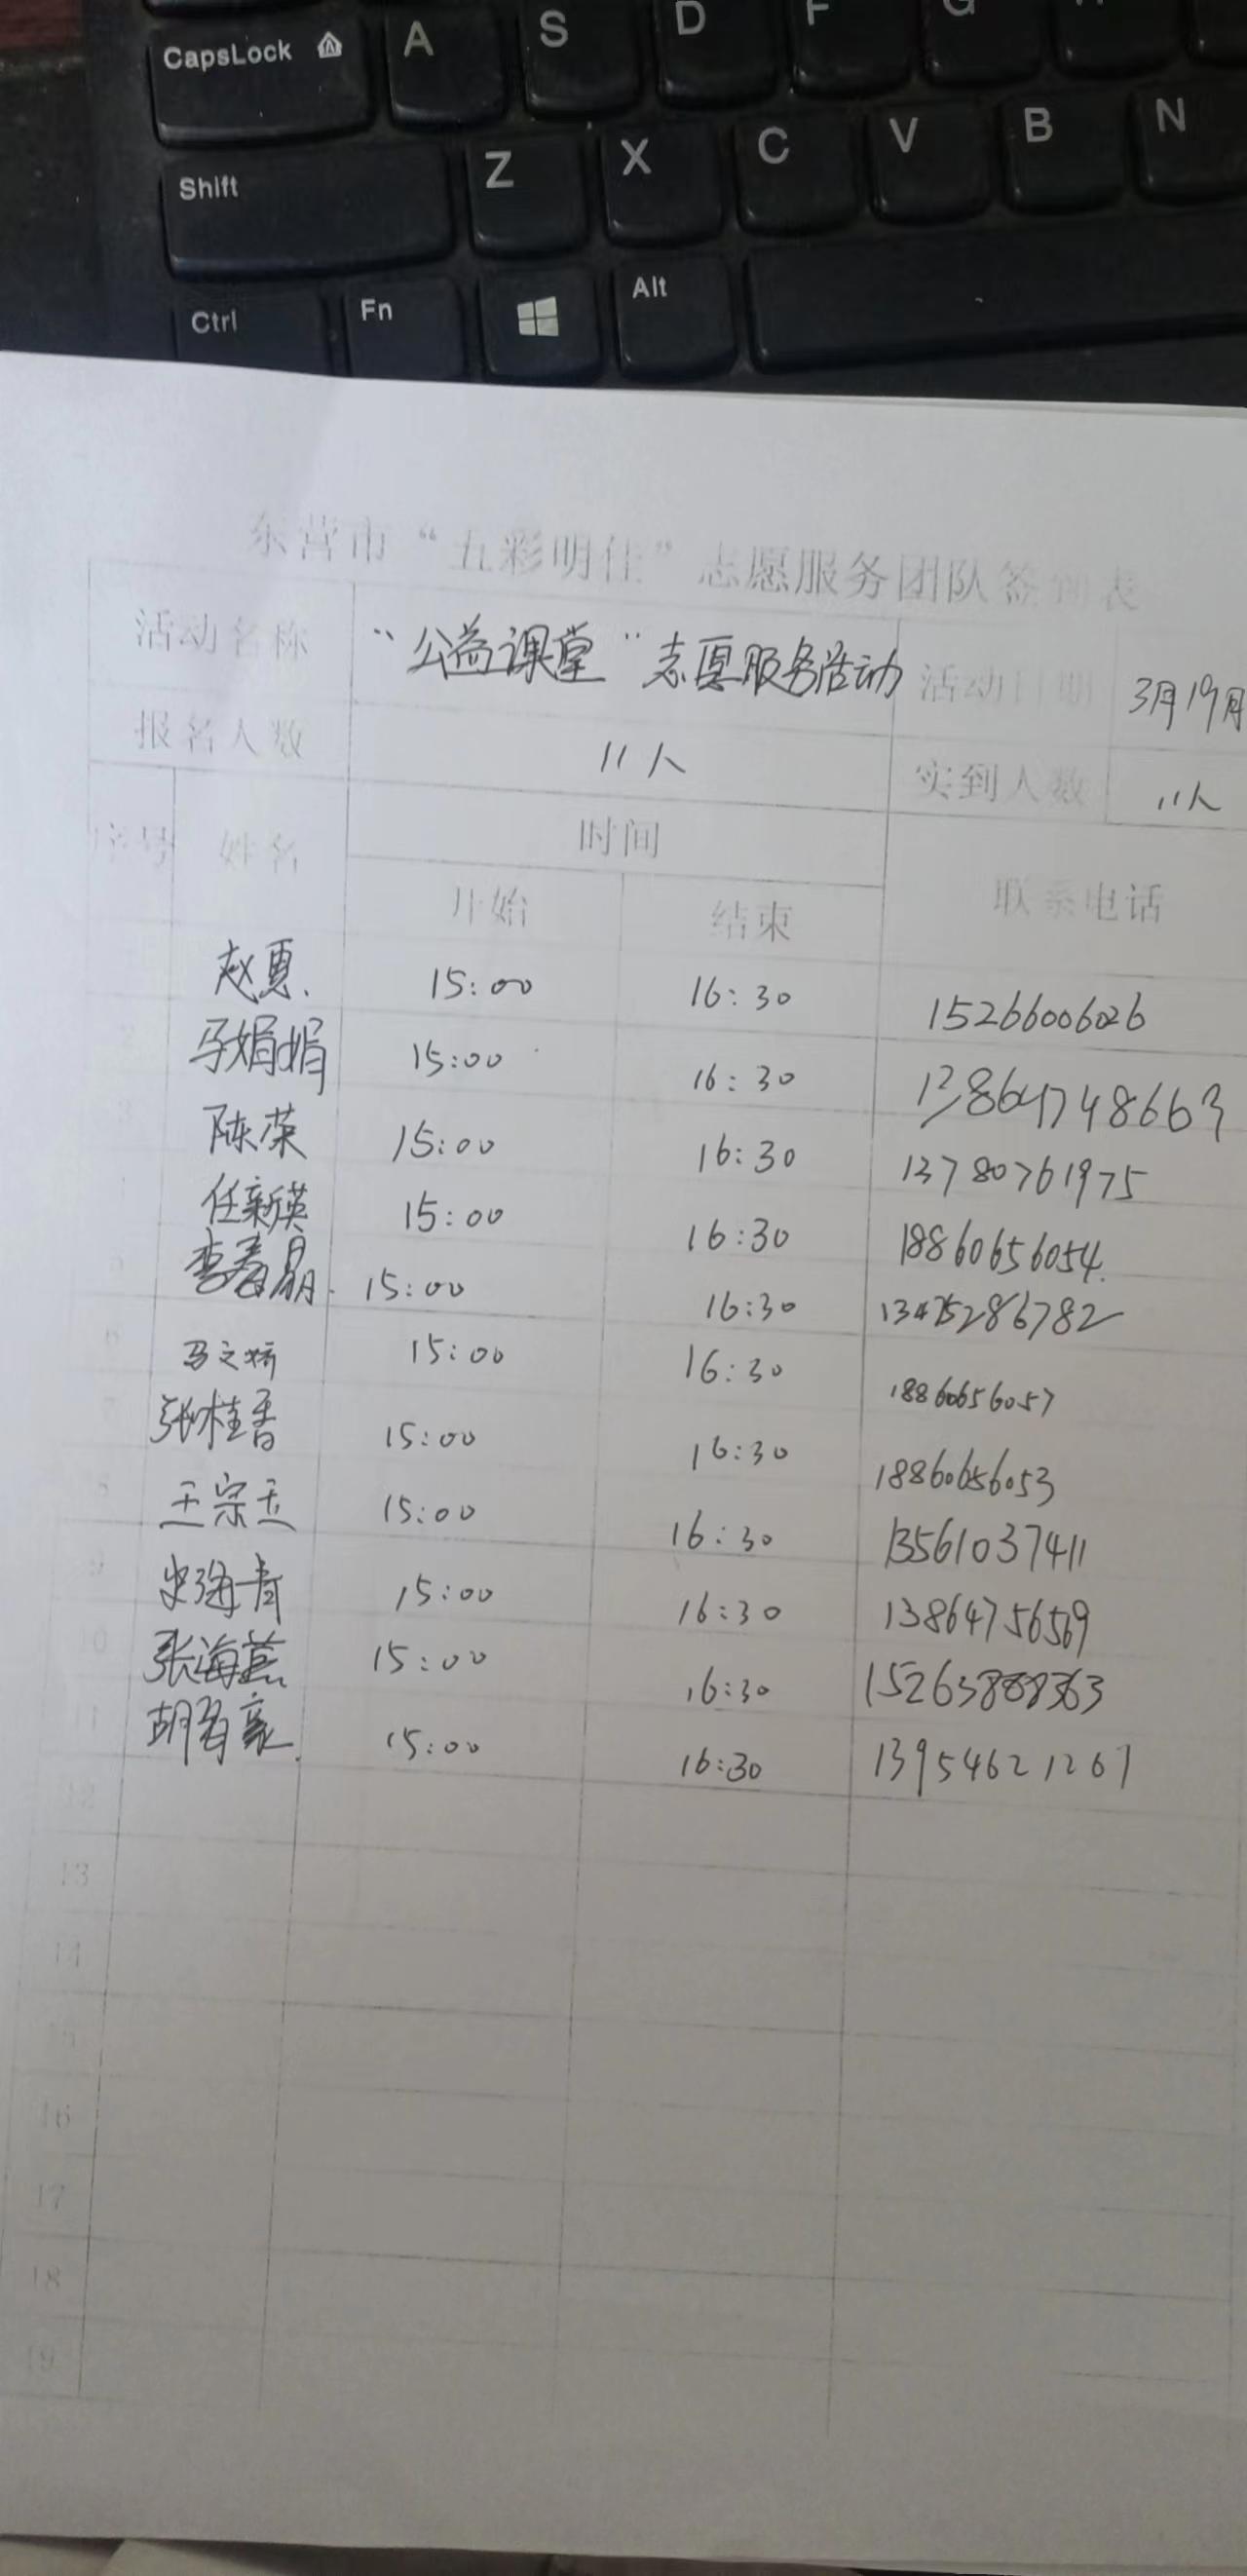 A S D F G
CapsLock
Z X C V B N
Shift
Ctrl Fn Alt
东营市“五彩明佳”志愿服务团队签到表
活动名称 “公益课堂”志愿服务活动 活动日期 3月19月
报名人数 11人 实到人数 11人
序号 姓名 时间 联系电话
开始 结束
15:00 16:30 15266006026
马娟娟 15:00 16:30 13864748663
陈荣 15:00 16:30 13780761975
任新英 15:00 16:30 18860656054
5 李春晶 15:00 16:30 13475286782
6 马文娇 15:00 16:30 18860656057
7 张桂香 15:00 16:30 18860656053
8 王宗玉 15:00 16:30 13561037411
9 史海青 15:00 16:30 13864756569
10 张海燕 15:00 16:30
11 15:00 16:30 13954621261
12
13
14
15
16
17
18
19